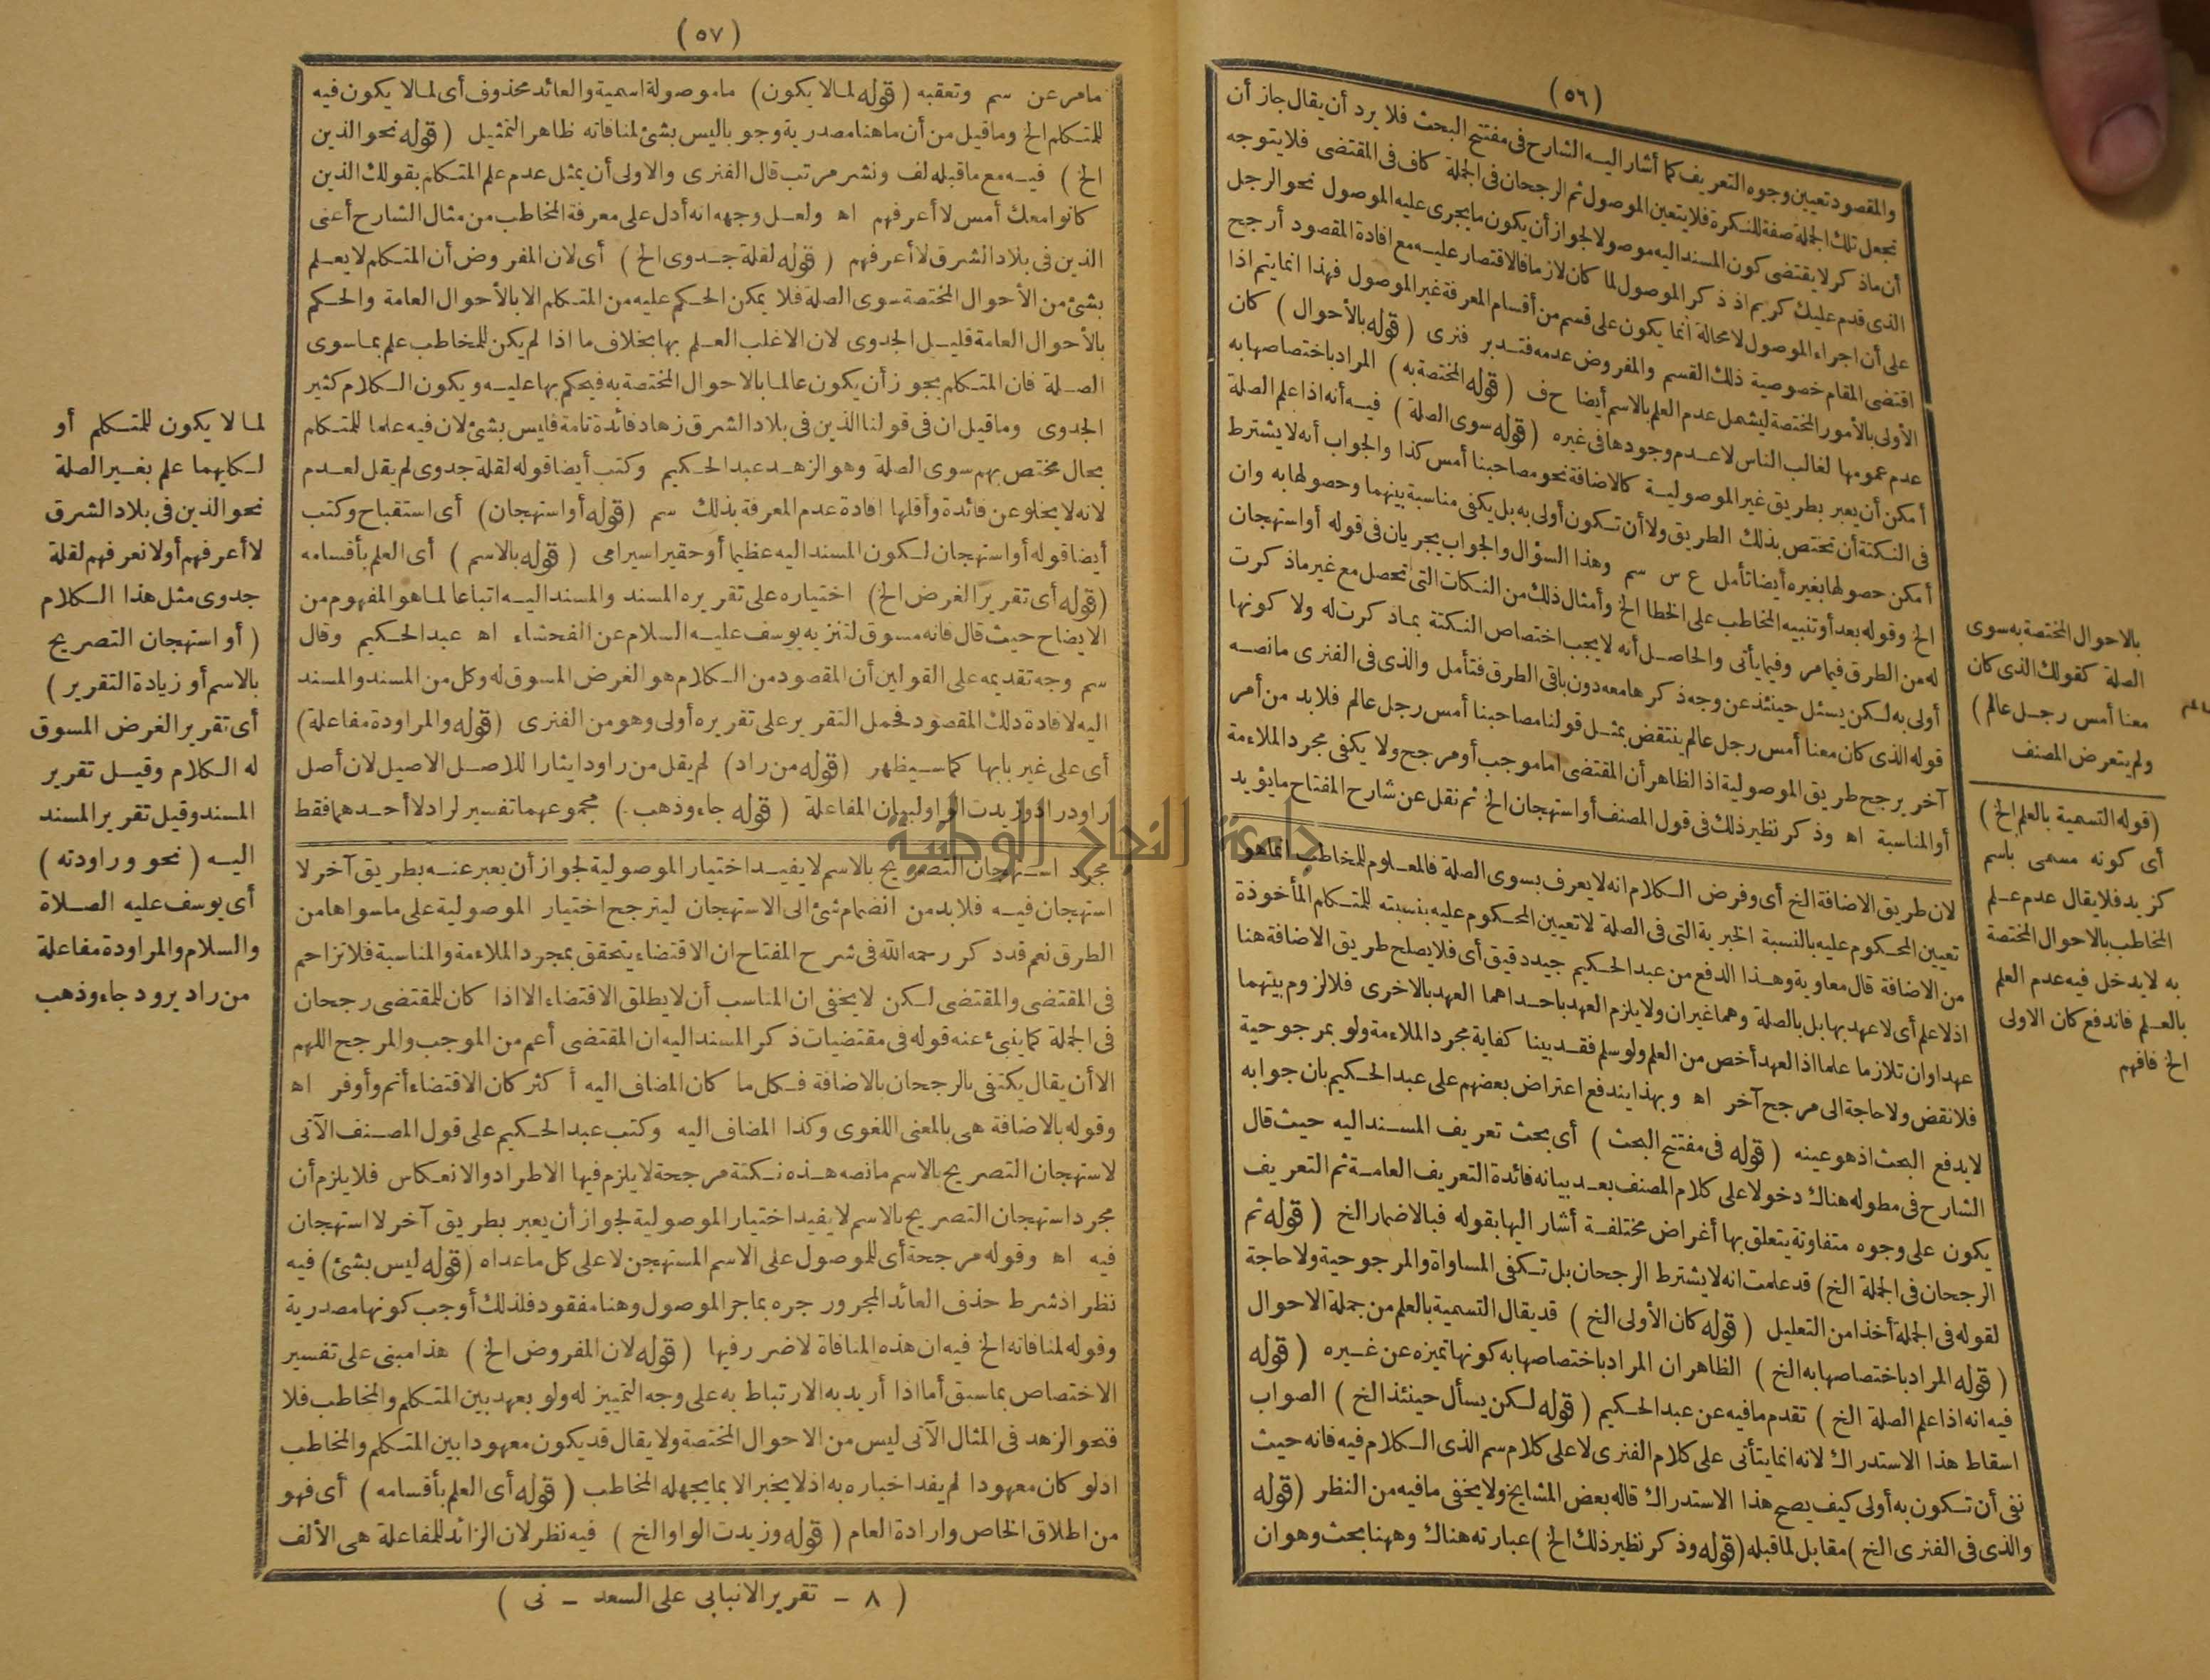 (٥٦)
والمقصود تعيين وجوه التعريف كما أشار اليه الشارح فى مفتتح البحث فلا يرد أن يقال جاز أن
تجعل تلك الجملة صفة للنكرة فلا يتعين الموصول ثم الرجحان فى الجملة كاف فى المقتضى فلا يتوجه
أن ماذكر لا يقتضى كون المسند اليه موصولا لجواز أن يكون ما يجرى عليه الموصول نحو الرجل
الذى قدم عليك كريم اذ ذكر الموصول لما كان لازما فالاقتصار عليه مع افادة المقصود أرجح
على أن اجراء الموصول لا محالة انما يكون على قسم من أقسام المعرفة غير الموصول فهذا انما يتم اذا
اقتضى المقام خصوصية ذلك القسم والمفروض عدمه فتدبر فنرى (قوله بالأحوال) كان
الأولى بالأمور المختصة ليشمل عدم العلم بالاسم أيضا ح ف (قوله المختصة به) المراد باختصاصها به
عدم عمومها لغالب الناس لا عدم وجودها فى غيره (قوله سوى الصلة) فيه أنه اذا علم الصلة
أمكن أن يعبر بطريق غير الموصولية كالاضافة نحو مصاحبنا أمس كذا والجواب أنه لا يشترط
فى النكتة أن تختص بذلك الطريق ولا أن تكون أولى به بل يكفى مناسبة بينهما وحصولها به وان
أمكن حصولها بغيره أيضا تأمل ع س سم وهذا السؤال والجواب يجريان فى قوله أو استهجان
الخ وقوله بعد أو تنبيه المخاطب على الخطا الخ وأمثال ذلك من النكات التى تحصل مع غير ماذكرت
له من الطرق فيما مر وفيما يأتى والحاصل أنه لا يجب اختصاص النكتة بماذكرت له ولا كونها
أولى به لكن يسئل حينئذ عن وجه ذكرها معه دون باقى الطرق فتأمل والذى فى الفنرى مانصه
قوله الذى كان معنا أمس رجل عالم ينتقض بمثل قولنا مصاحبنا أمس رجل عالم فلا بد من أمر
آخر يرجح طريق الموصولية اذ الظاهر أن المقتضى اما موجب أو مرجح ولا يكفى مجرد الملاءمة
أو المناسبة اه وذكر نظير ذلك فى قول المصنف أو استهجان الخ ثم نقل عن شارح المفتاح ما يؤيد
لان طريق الاضافة الخ أى وفرض الكلام انه لا يعرف بسوى الصلة فالمعلوم للمخاطب انما هو
تعيين المحكوم عليه بالنسبة الخبرية التى فى الصلة لا تعيين المحكوم عليه بنسبته للمتكلم المأخوذة
من الاضافة قال معاوية وهذا الدفع من عبد الحكيم جيد دقيق أى فلا يصلح طريق الاضافة هنا
اذ لا علم أى لا عهد بها بل بالصلة وهما غيران ولا يلزم العهد باحداهما العهد بالاخرى فلا لزوم بينهما
عهدا وان تلازما علما اذ العهد أخص من العلم ولو سلم فقد بينا كفاية مجرد الملاءمة ولو بمرجوحية
فلا نقض ولا حاجة الى مرجح آخر اه وبهذا يندفع اعتراض بعضهم على عبد الحكيم بان جوابه
لا يدفع البحث اذ هو عينه (قوله فى مفتتح البحث) أى بحث تعريف المسند اليه حيث قال
الشارح فى مطوله هناك دخولا على كلام المصنف بعد بيانه فائدة التعريف العامة ثم التعريف
يكون على وجوه متفاوتة يتعلق بها أغراض مختلفة أشار اليها بقوله فبالاضمار الخ (قوله ثم
الرجحان فى الجملة الخ) قد علمت انه لا يشترط الرجحان بل تكفى المساواة والمرجوحية ولا حاجة
لقوله فى الجملة أخذا من التعليل (قوله كان الأولى الخ) قد يقال التسمية بالعلم من جملة الاحوال
(قوله المراد باختصاصها به الخ) الظاهر ان المراد باختصاصها به كونها تميزه عن غيره (قوله
فيه انه اذا علم الصلة الخ) تقدم مافيه عن عبد الحكيم (قوله لكن يسأل حينئذ الخ) الصواب
اسقاط هذا الاستدراك لانه انما يتأتى على كلام الفنرى لا على كلام سم الذى الكلام فيه فانه حيث
نفى أن تكون به أولى كيف يصح هذا الاستدراك قاله بعض المشايخ ولا يخفى مافيه من النظر (قوله
والذى فى الفنرى الخ) مقابل لما قبله (قوله وذكر نظير ذلك الخ) عبارته هناك وههنا بحث وهو ان
بالاحوال المختصة به سوى
الصلة كقولك الذى كان
معنا أمس رجل عالم)
ولم يتعرض المصنف
(قوله التسمية بالعلم الخ)
أى كونه مسمى باسم
كزيد فلا يقال عدم علم
المخاطب بالاحوال المختصة
به لا يدخل فيه عدم العلم
بالعلم فاندفع كان الاولى
الخ فافهم
(٥٧)
مامر عن سم وتعقبه (قوله لما لا يكون) ما موصولة اسمية والعائد محذوف أى لما لا يكون فيه
للمتكلم الخ وما قيل من أن ما هنا مصدرية وجوبا ليس بشئ لمنافاته ظاهر التمثيل (قوله نحو الذين
الخ) فيه مع ماقبله لف ونشر مرتب قال الفنرى والاولى أن يمثل عدم علم المتكلم بقولك الذين
كانوا معك أمس لا أعرفهم اه ولعل وجهه انه أدل على معرفة المخاطب من مثال الشارح أعنى
الذين فى بلاد الشرق لا أعرفهم (قوله لقلة جدوى الخ) أى لان المفروض أن المتكلم لا يعلم
بشئ من الأحوال المختصة سوى الصلة فلا يمكن الحكم عليه من المتكلم الا بالأحوال العامة والحكم
بالأحوال العامة قليل الجدوى لان الاغلب العلم بها بخلاف ما اذا لم يكن للمخاطب علم بما سوى
الصلة فان المتكلم يجوز أن يكون عالما بالاحوال المختصة به فيحكم بها عليه ويكون الكلام كثير
الجدوى وما قيل ان فى قولنا الذين فى بلاد الشرق زهاد فائدة تامة فليس بشئ لان فيه علما للمتكلم
بحال مختص بهم سوى الصلة وهو الزهد عبد الحكيم وكتب أيضا قوله لقلة جدوى لم يقل لعدم
لانه لا يخلو عن فائدة وأقلها افادة عدم المعرفة بذلك سم (قوله أو استهجان) أى استقباح وكتب
أيضا قوله أو استهجان لكون المسند اليه عظيما أو حقيرا سيرامى (قوله بالاسم) أى العلم بأقسامه
(قوله أى تقرير الغرض الخ) اختياره على تقريره المسند والمسند اليه اتباعا لما هو المفهوم من
الايضاح حيث قال فانه مسوق لتنزيه يوسف عليه السلام عن الفحشاء اه عبد الحكيم وقال
سم وجه تقديمه على القولين أن المقصود من الكلام هو الغرض المسوق له وكل من المسند والمسند
اليه لافادة ذلك المقصود فحمل التقرير على تقريره أولى وهو من الفنرى (قوله والمراودة مفاعلة)
أى على غير بابها كما سيظهر (قوله من راد) لم يقل من راود ايثارا للاصل الاصيل لان أصل
راود راد وزيدت الواو لبيان المفاعلة (قوله جاء وذهب) مجموعهما تفسير لراد لا أحدهما فقط
مجرد استهجان التصريح بالاسم لا يفيد اختيار الموصولية لجواز أن يعبر عنه بطريق آخر لا
استهجان فيه فلا بد من انضمام شئ الى الاستهجان ليترجح اختيار الموصولية على ما سواها من
الطرق نعم قد ذكر رحمه الله فى شرح المفتاح ان الاقتضاء يتحقق بمجرد الملاءمة والمناسبة فلا تزاحم
فى المقتضى والمقتضى لكن لا يخفى ان المناسب أن لا يطلق الاقتضاء الا اذا كان للمقتضى رجحان
فى الجملة كما ينبئ عنه قوله فى مقتضيات ذكر المسند اليه ان المقتضى أعم من الموجب والمرجح اللهم
الا أن يقال يكتفى بالرجحان بالاضافة فكل ما كان المضاف اليه أكثر كان الاقتضاء أتم وأوفر اه
وقوله بالاضافة هى بالمعنى اللغوى وكذا المضاف اليه وكتب عبد الحكيم على قول المصنف الآتى
لاستهجان التصريح بالاسم مانصه هذه نكتة مرجحة لا يلزم فيها الاطراد والانعكاس فلا يلزم أن
مجرد استهجان التصريح بالاسم لا يفيد اختيار الموصولية لجواز أن يعبر بطريق آخر لا استهجان
فيه اه وقوله مرجحة أى للموصول على الاسم المستهجن لا على كل ماعداه (قوله ليس بشئ) فيه
نظر اذ شرط حذف العائد المجرور جره بما جر الموصول وهنا مفقود فلذلك أوجب كونها مصدرية
وقوله لمنافاته الخ فيه ان هذه المنافاة لا ضرر فيها (قوله لان المفروض الخ) هذا مبنى على تفسير
الاختصاص بما سبق أما اذا أريد به الارتباط به على وجه التمييز له ولو بعهد بين المتكلم والمخاطب فلا
فنحو الزهد فى المثال الآتى ليس من الاحوال المختصة ولا يقال قد يكون معهودا بين المتكلم والمخاطب
اذ لو كان معهودا لم يفد اخباره به اذ لا يخبر الا بما يجهله المخاطب (قوله أى العلم بأقسامه) أى فهو
من اطلاق الخاص وارادة العام (قوله وزيدت الواو الخ) فيه نظر لان الزائد للمفاعلة هى الألف
لما لا يكون للمتكلم أو
لكليهما علم بغير الصلة
نحو الذين فى بلاد الشرق
لا أعرفهم أو لا نعرفهم لقلة
جدوى مثل هذا الكلام
(أو استهجان التصريح
بالاسم أو زيادة التقرير)
أى تقرير الغرض المسوق
له الكلام وقيل تقرير
المسند وقيل تقرير المسند
اليه (نحو وراودته)
أى يوسف عليه الصلاة
والسلام والمراودة مفاعلة
من راد يرود جاء وذهب
(٨ - تقرير الانبابى على السعد - نى)
جامعة النجاح الوطنية